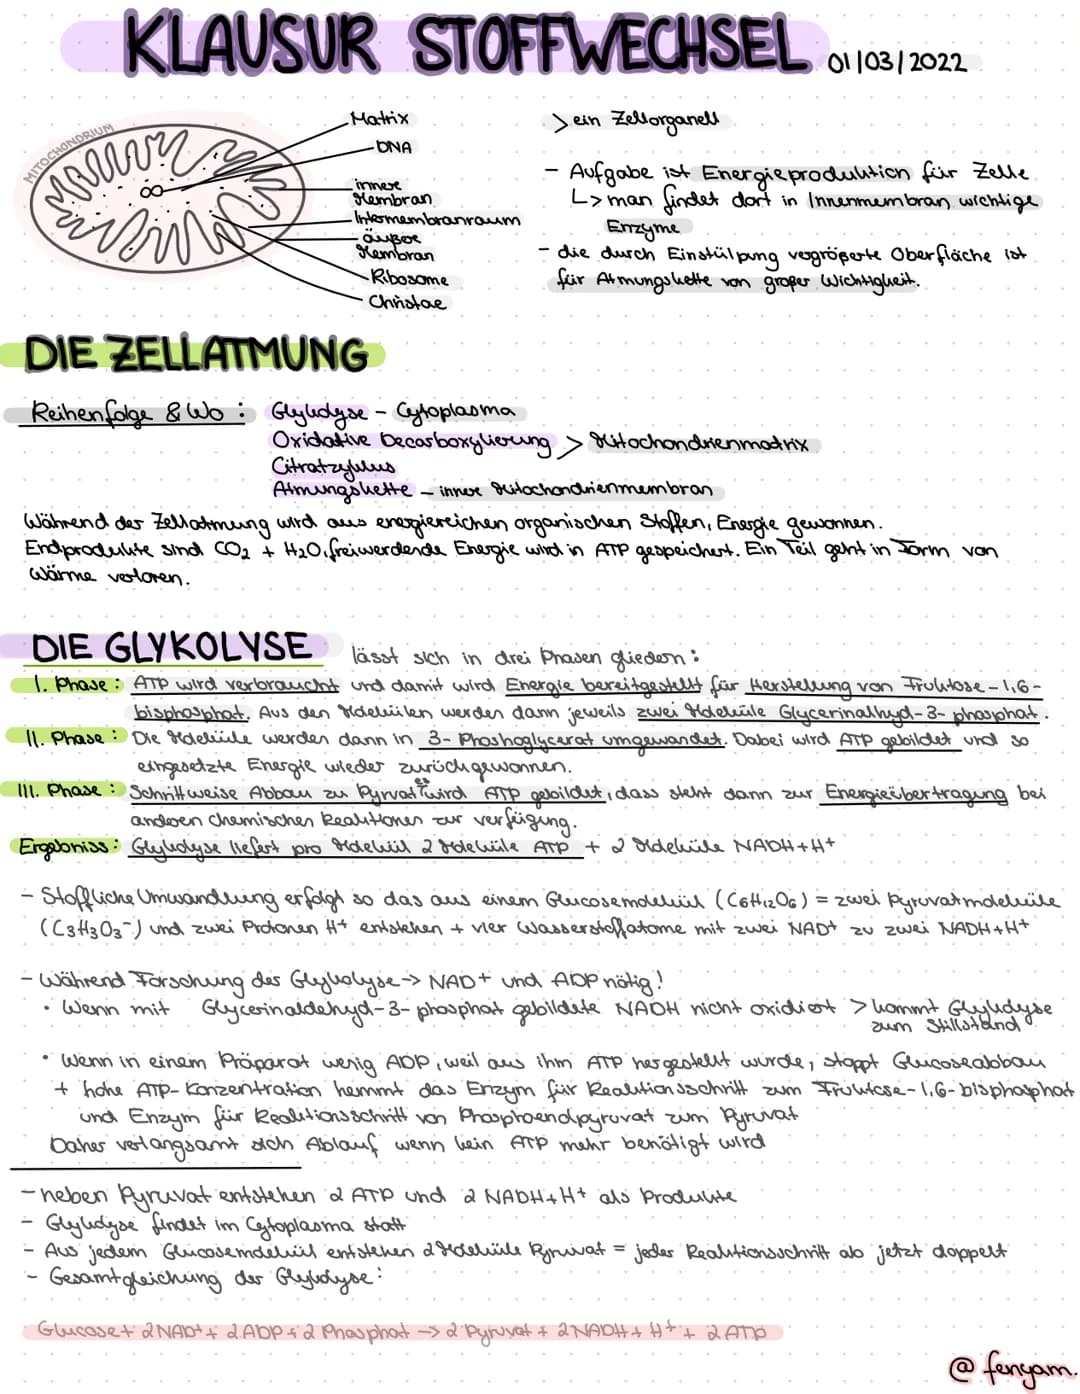 KLAUSUR STOFFWECHSEL 01/03/2022
MITOCHONDRIUM
Matrix
DNA
innere
Membran
Intermembranraum
äußere
Membran
Ribosome
Christae
> ein Zellorganell
- Aufgabe ist Energieproduktion für Zelle
↳ man findet dort in Innenmembran wichtige
Enzyme
- die durch Einstülpung vergrößerte Oberfläche ist
für Atmungskette von großer Wichtigkeit.
DIE ZELLATMUNG
Reihenfolge & Wo : Glykolyse - Cytoplasma
Oxidative Decarboxylierung > Mitochondrienmatrix
Citratzyklus
Atmungskette - innere Mitochondrienmembran
Während der Zellatmung wird aus energiereichen organischen Stoffen, Energie gewonnen.
Endprodukte sind CO₂ + H₂O, freiwerdende Energie wird in ATP gespeichert. Ein Teil geht in Form von
Wärme verloren.
DIE GLYKOLYSE lässt sich in drei Phasen gliedern :
I. Phase : ATP wird verbraucht und damit wird Energie bereitgestellt für Herstellung von Fruktose-1,6-
bisphosphat. Aus den Molekülen werden dann jeweils zwei Moleküle Glycerinalhyd-3-phosphat.
II. Phase : Die Moleküle werden dann in 3-Phoshoglycerat umgewandet. Dabei wird ATP gebildet und so
eingesetzte Energie wieder zurückgewonnen.
III. Phase : Schrittweise Abbau zu Pyrvat wird ATP gebildet, dass steht dann zur Energieübertragung bei
anderen chemischen Reaktionen zur verfügung.
Ergebniss : Glykolyse liefert pro Molekül 2 Moleküle ATP + 2 Moleküle NADH+H⁺
- Stoffliche Umwandlung erfolgt so das aus einem Glucosemolekül (C₆H₁₂O₆) = zwei Pyruvatmoleküle
(C₃H₃O₃⁻) und zwei Protonen H⁺ entstehen + vier Wasserstoffatome mit zwei NAD⁺ zu zwei NADH+H⁺
- Während Forschung der Glykolyse -> NAD+ und ADP nötig!
• Wenn mit Glycerinaldehyd-3-phosphat gebildete NADH nicht oxidiert > kommt Glykolyse
zum Stillstand
• Wenn in einem Präparat wenig ADP, weil aus ihm ATP hergestellt wurde, stoppt Glucoseabbau
+ hohe ATP-Konzentration hemmt das Enzym für Reaktionsschritt zum Fruktose-1,6-bisphosphat
und Enzym für Reaktionsschritt von Phosphoenolpyruvat zum Pyruvat
Daher verlangsamt sich Ablauf wenn kein ATP mehr benötigt wird
- neben Pyruvat entstehen 2 ATP und 2 NADH+H⁺ als Produkte
- Glykolyse findet im Cytoplasma statt
- Aus jedem Glucosemolekül entstehen 2 Moleküle Pyruvat = jeder Reaktionsschritt ab jetzt doppelt
- Gesamtgleichung der Glykolyse :
Glucose + 2 NAD⁺ + 2 ADP + 2 Phosphat -> 2 Pyruvat + 2 NADH + H⁺ + 2 ATP
@fenyam.